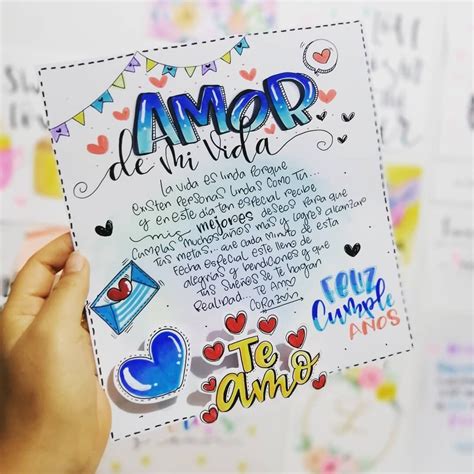 AMOR
de mi vida
La vida es linda porque
existen personas lindas como tú...
y en este día tan especial recibe
mis mejores deseos para que
cumplas muchos años más y logres alcanzar
tus metas... que cada minuto de esta
fecha especial esté lleno de
alegrías y bendiciones y que
tus sueños se te hagan
realidad... Te Amo
Corazón
FELIZ
Cumple
AÑOS
Te
amo